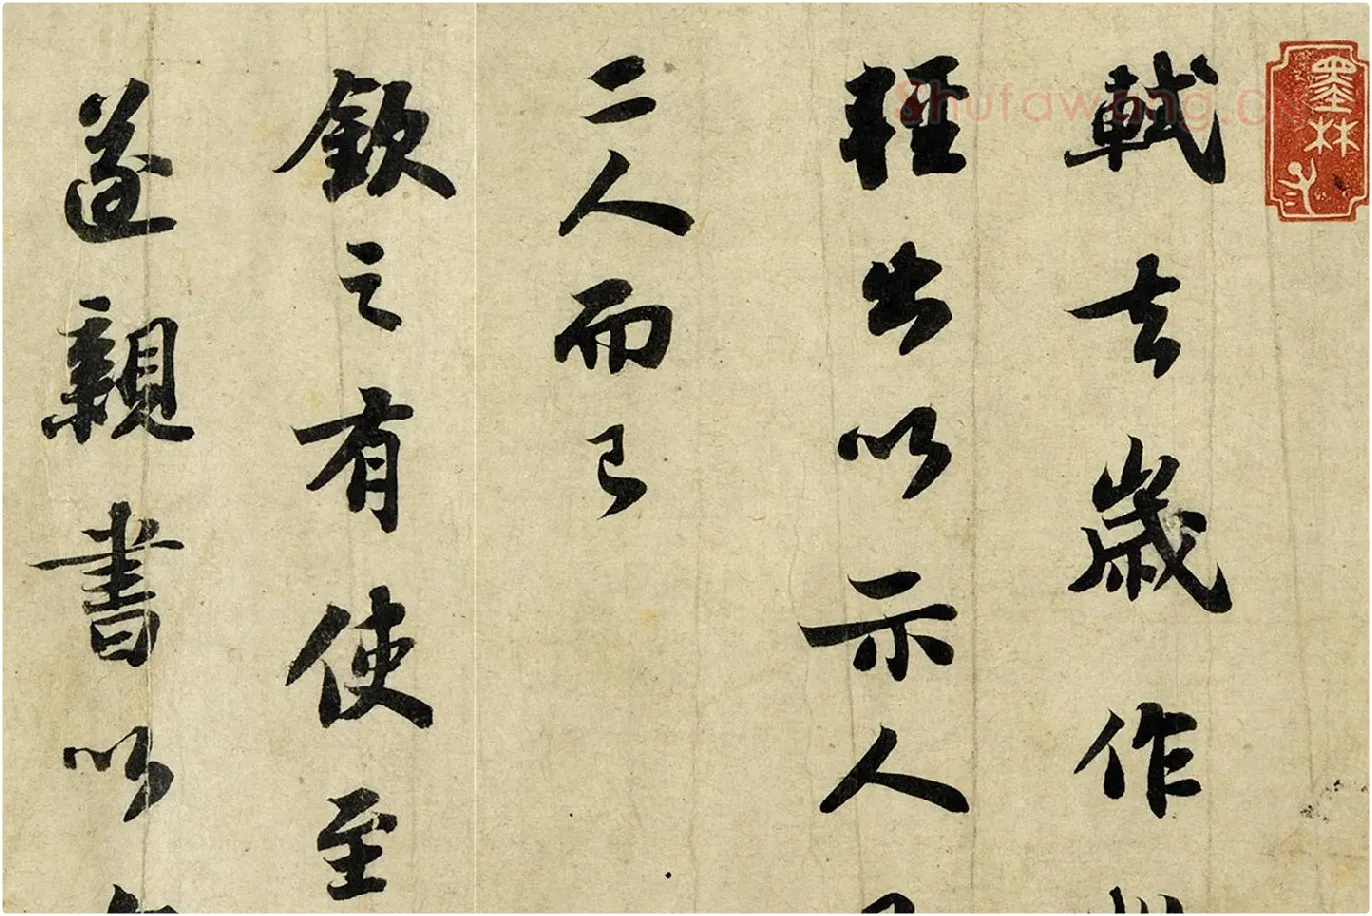 軾去歲作
輕出以示人
一二人而已
欽之有使至
遂親書以
墨林
Shufawang.cn